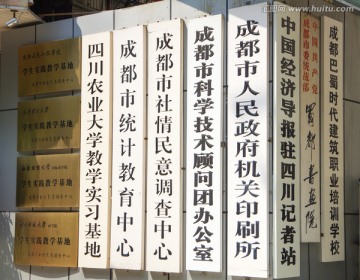 学生实践教学基地
学生实践教学基地
学生实践教学基地
学生实践教学基地
四川农业大学教学实习基地
成都市统计教育中心
成都市社情民意调查中心
成都市科学技术顾问团办公室
成都市人民政府机关印刷所
中国经济导报驻四川记者站
中国共产党
成都市委统战部
蜀都书画院
成都巴蜀时代建筑职业培训学校